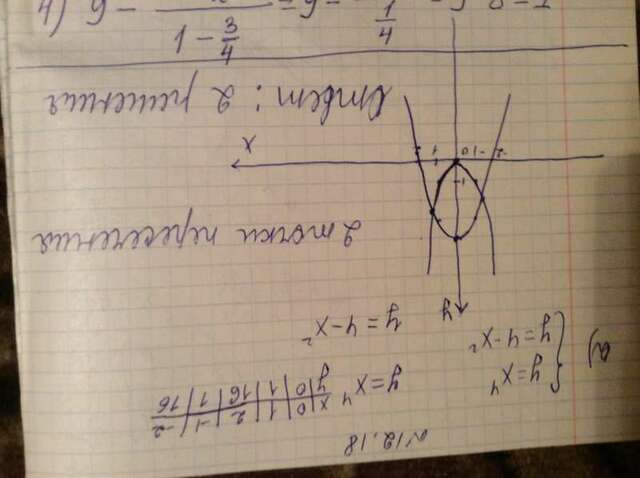 №12.18
а) { y = x⁴
y = 4 - x²
y = x⁴
x | 0 | 1 | 2 | -1 | -2
y | 0 | 1 | 16 | 1 | 16
y = 4 - x²
y
1
-2 -1 0 1 2
x
2 точки пересечения
Ответ: 2 решения
4) y =
1 - 3/4
1/4